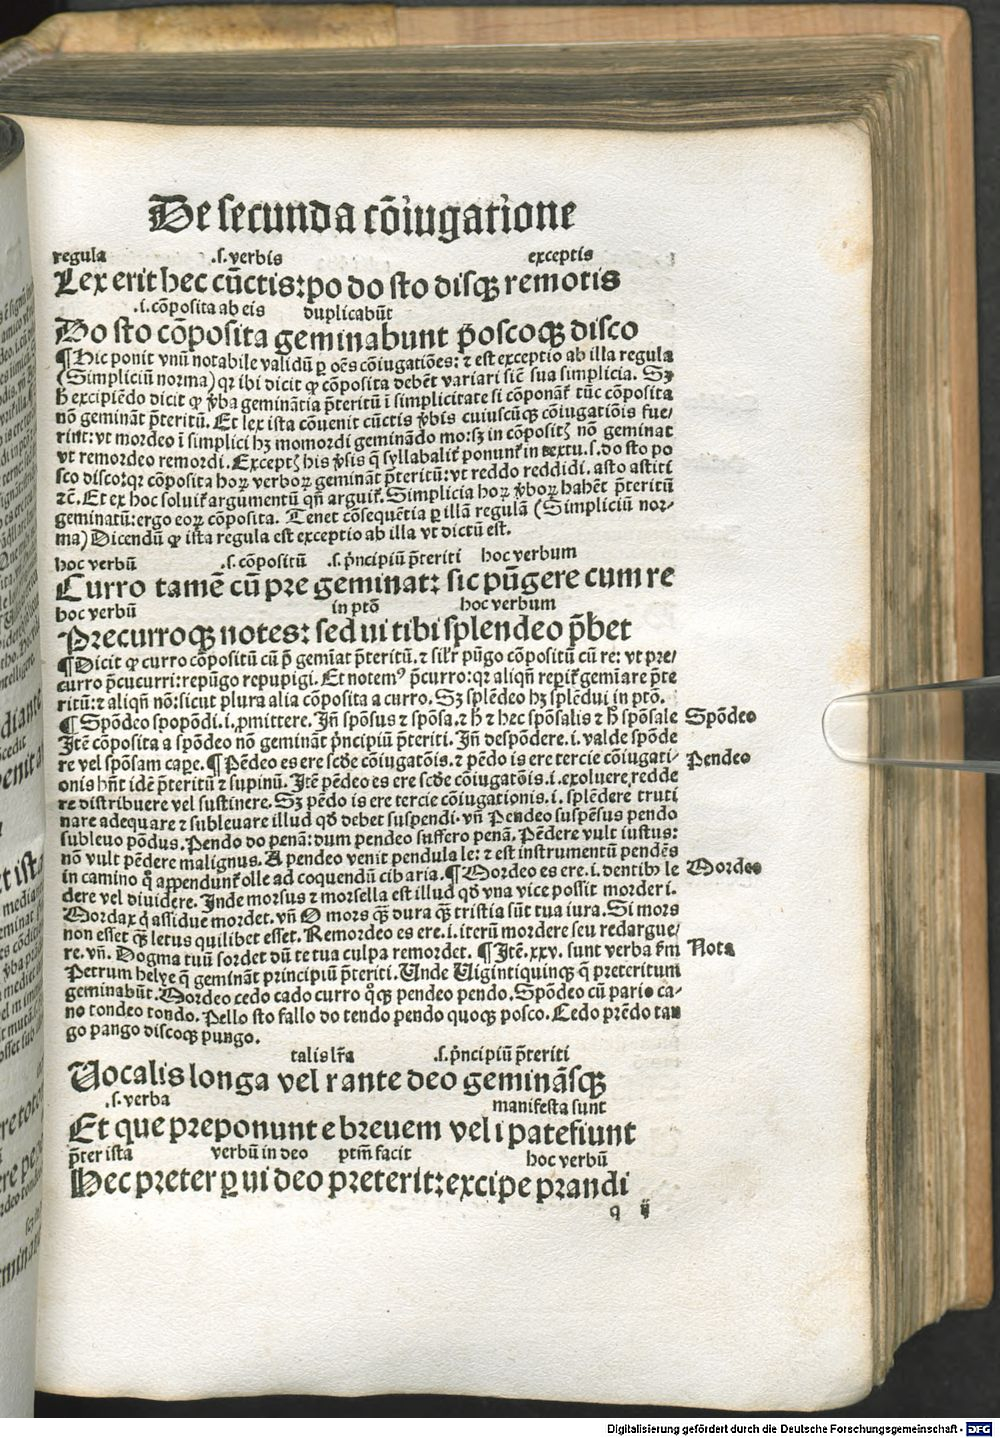 De secunda cõiugatione
regula .s. verbis exceptis
Lex erit hec cũctis: po do sto disqꝫ remotis
.i. cõposita ab eis duplicabũt
Do sto cõposita geminabunt p̃oscoqꝫ disco
¶ Hic ponit vnũ notabile validũ ꝑ oẽs cõiugatiões: ⁊ est exceptio ab illa regula
(Simpliciũ norma) qꝛ ibi dicit ꝙ cõposita debẽt variari sicut̃ sua simplicia. Sꝫ
h̃ excipiẽdo dicit ꝙ v̾ba geminãtia p̃teritũ ĩ simplicitate si cõponanť tũc cõposita
nõ geminãt p̃teritũ. Et lex ista cõuenit cũctis v̾bis cuiuscũqꝫ cõiugatiõis fue/
rint: vt mordeo ĩ simplici hꝫ momordi geminãdo mo: sꝫ in cõpositꝭ nõ geminat
vt remordeo remordi. Exceptꝭ his v̾sis q̃ syllabaliť ponunť in textu .s. do sto po
sco disco: qꝛ cõposita hoꝝ verboꝝ geminãt p̃teritũ: vt reddo reddidi. asto astiti
⁊c̃. Et ex hoc soluiť argumentũ qñ arguiť. Simplicia hoꝝ v̾boꝝ habẽt p̃teritũ
geminatũ: ergo eoꝝ cõposita. Tenet cõsequẽtia ꝑ illã regulã (Simpliciũ nor-
ma) Dicendũ ꝙ ista regula est exceptio ab illa vt dictũ est.
hoc verbũ .s. cõpositũ .s. p̃ncipiũ p̃teriti hoc verbum
Curro tamẽ cũ pre geminat: sic pũgere cum re
hoc verbũ in ptõ hoc verbum
Precurroqꝫ notes: sed ui tibi splendeo p̃bet
¶ Dicit ꝙ curro cõpositũ cũ p̃ gemiãt p̃teritũ. ⁊ silr̃ pũgo cõpositũ cũ re: vt pre/
curro p̃cucurri: repũgo repupigi. Et notemꝰ p̃curro: qꝛ aliqñ repiť gemiare p̃te
ritũ: ⁊ aliqñ nõ: sicut plura alia cõposita a curro. Sꝫ splẽdeo hꝫ splẽdui in ptõ.
¶ Spõdeo spopõdi .i. ꝓmittere. Iñ spõsus ⁊ spõsa. ⁊ h̃ ⁊ hec spõsalis ⁊ h̃ spõsale Spõdeo
Itẽ cõposita a spõdeo nõ geminãt p̃ncipiũ p̃teriti. Iñ despõdere .i. valde spõde
re vel spõsam cape. ¶ Pẽdeo es ere scďe cõiugatõis. ⁊ pẽdo is ere tercie cõiugati- Pendeo
onis hñt idẽ p̃teritũ ⁊ supinũ. Itẽ pẽdeo es ere scďe cõiugatõis .i. exoluere redde
re distribuere vel sustinere. Sꝫ pẽdo is ere tercie cõiugationis .i. splẽdere truti
nare adequare ⁊ subleuare illud qď debet suspendi. vñ Pendeo suspẽsus pendo
subleuo põdus. Pendo do penã: dum pendeo suffero penã. Pẽdere vult iustus:
nõ vult pẽdere malignus. A pendeo venit pendula le: ⁊ est instrumentũ pendẽs
in camino q̊ appendunť olle ad coquendũ cibaria. ¶ Mordeo es ere .i. dentibꝫ le Mordeo
dere vel diuidere. Inde morsus ⁊ morsella est illud qď vna vice possit morderi.
Mordax q̇ assidue mordet. vñ O mors qꝫ dura qꝫ tristia sũt tua iura. Si mors
non esset qꝫ letus quilibet esset. Remordeo es ere .i. iterũ mordere seu redargue/
re. vñ. Dogma tuũ sordet dũ te tua culpa remordet. ¶ Itẽ .xxv. sunt verba ẜm Nota
Petrum helye q̃ geminãt principiũ p̃teriti. Unde Uigintiquinqꝫ q̃ preteritum
geminabũt. Mordeo cedo cado curro q̊qꝫ pendeo pendo. Spõdeo cũ pario ca-
no tondeo tondo. Pello sto fallo do tendo pendo quoqꝫ posco. Cedo prẽdo tan
go pango discoqꝫ pungo.
talis lr̃a .s. p̃ncipiũ p̃teriti
Uocalis longa vel r ante deo geminãsqꝫ
.s. verba manifesta sunt
Et que preponunt e breuem vel i patefiunt
p̃ter ista verbũ in deo ptm̃ facit hoc verbũ
Hec preter ꝑ ui deo preterit: excipe prandi
q ij
Digitalisierung gefördert durch die Deutsche Forschungsgemeinschaft - DFG